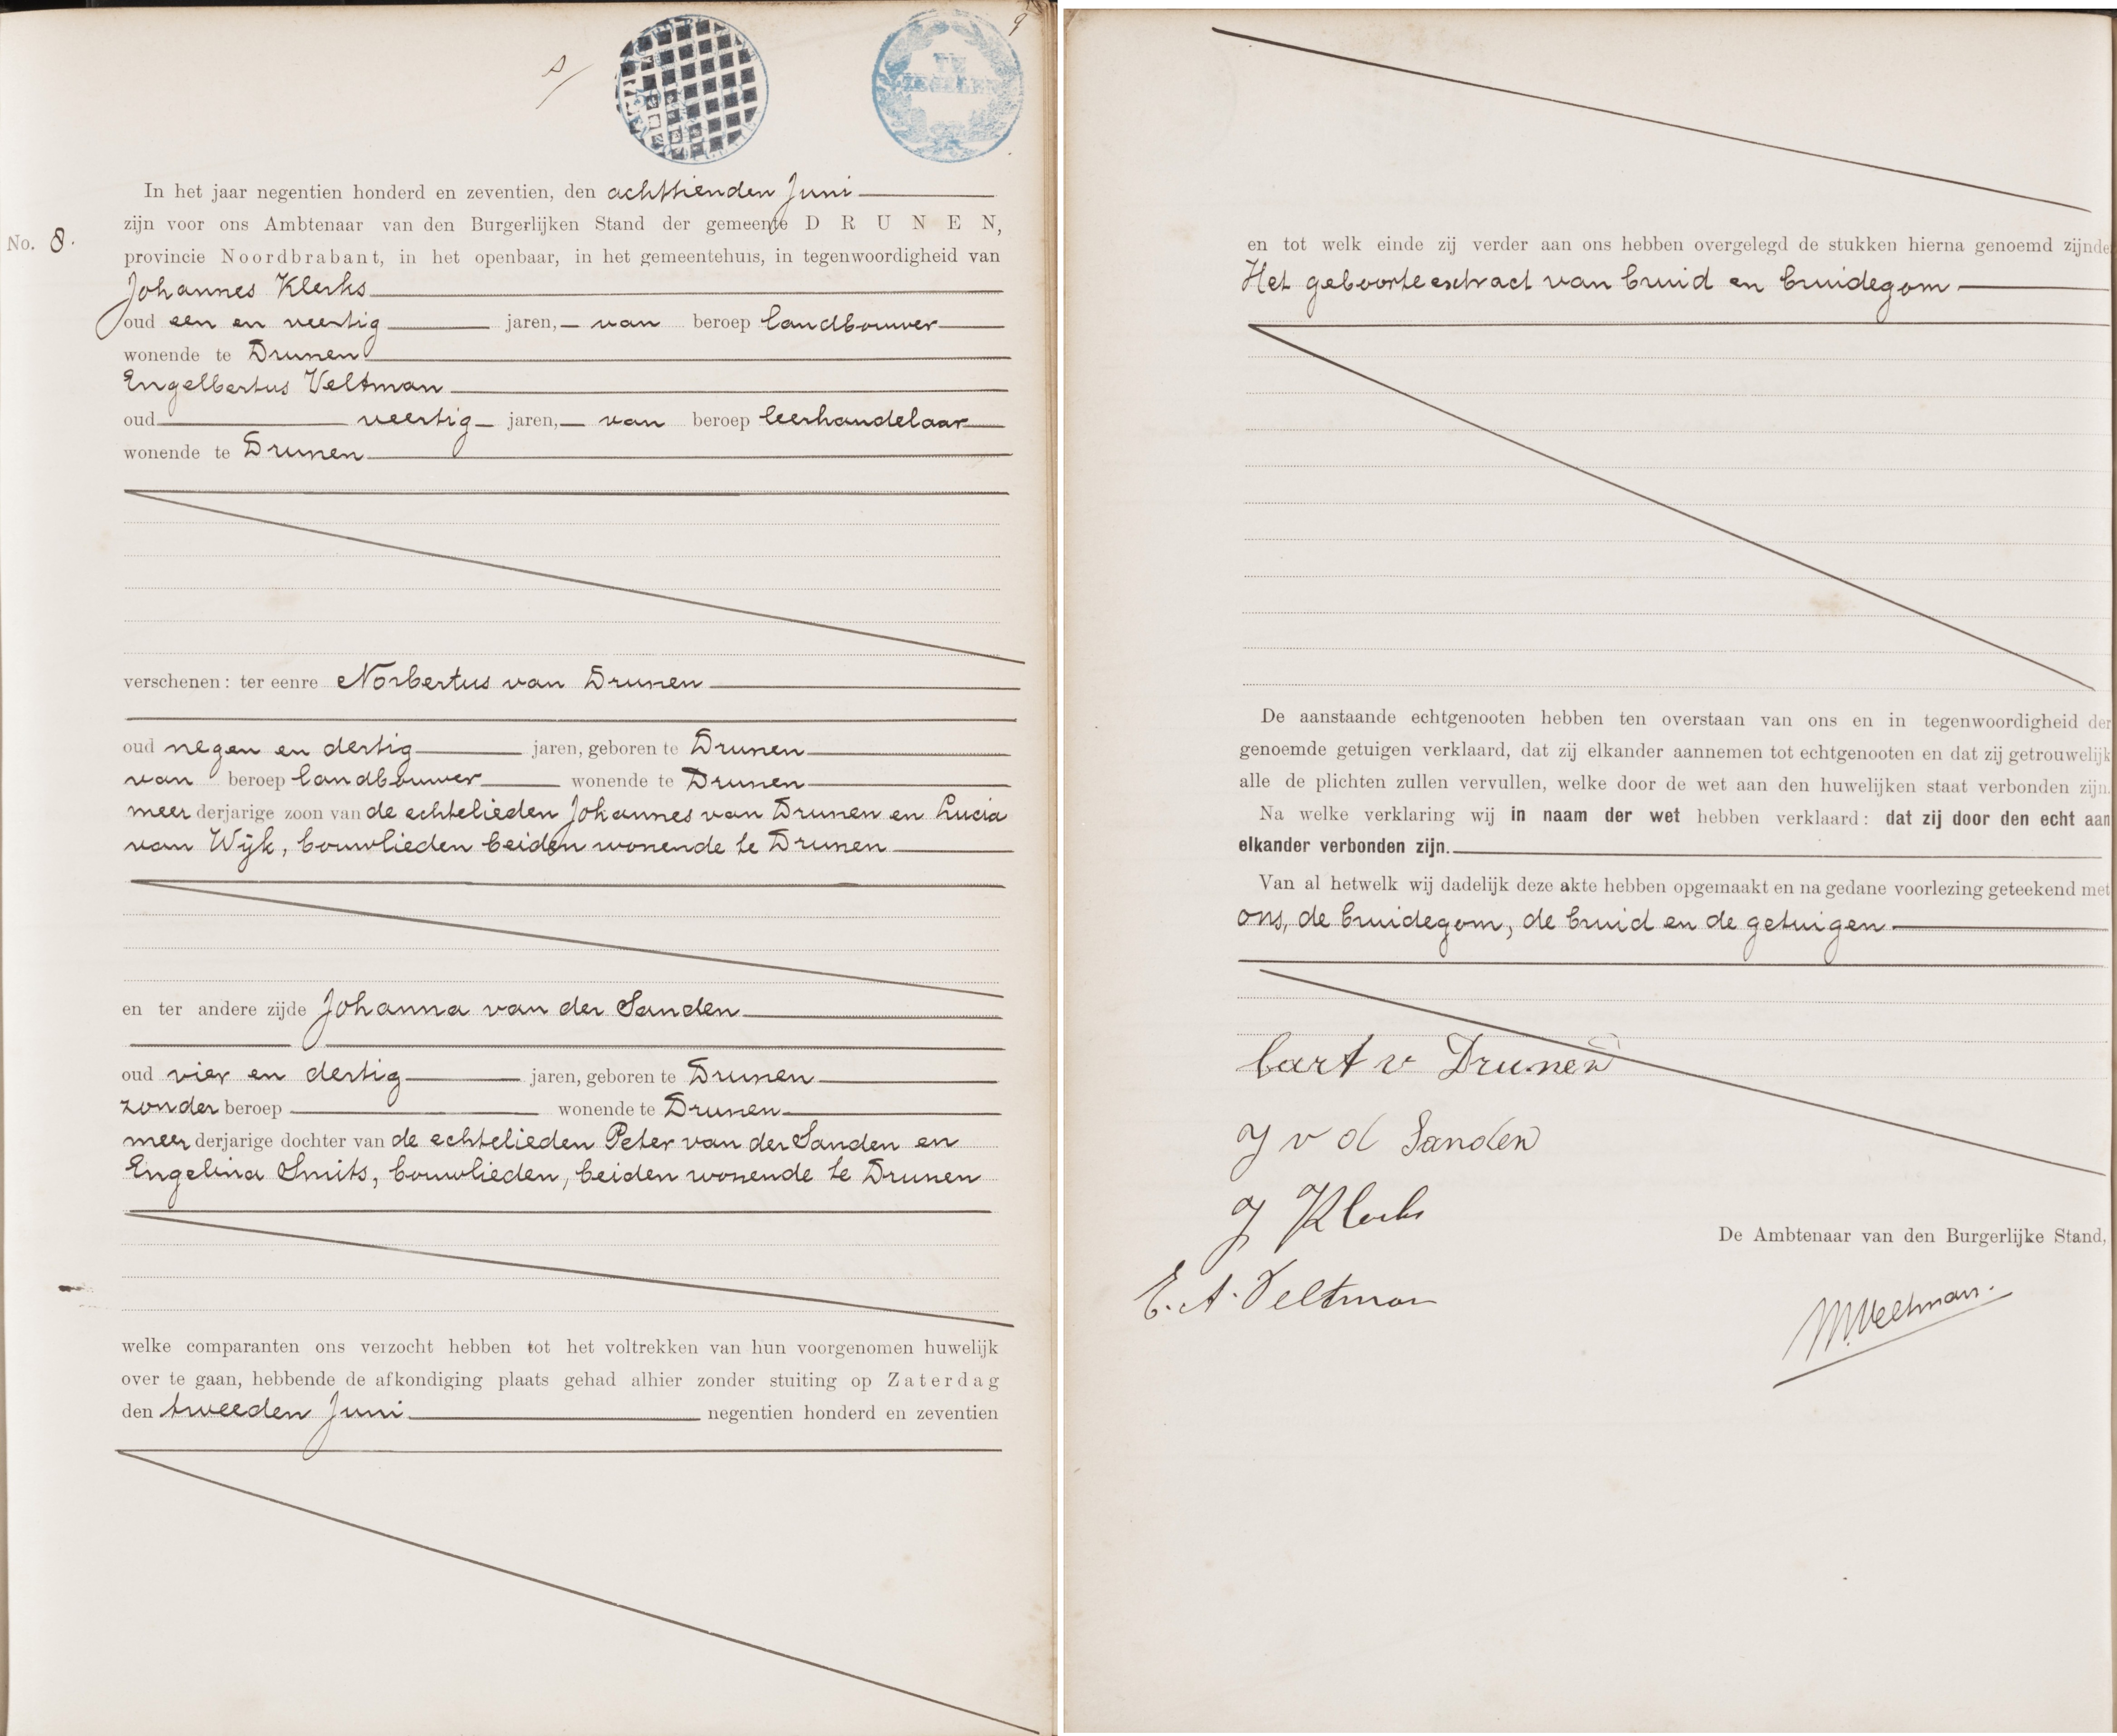 9
DE
ZEGELEN
In het jaar negentien honderd en zeventien, den achttienden Juni
zijn voor ons Ambtenaar van den Burgerlijken Stand der gemeente DRUNEN,
No. 8.
provincie Noordbrabant, in het openbaar, in het gemeentehuis, in tegenwoordigheid van
Johannes Klerks
oud een en veertig jaren, van beroep landbouwer
wonende te Drunen
Engelbertus Veltman
oud veertig jaren, van beroep leerhandelaar
wonende te Drunen
verschenen: ter eenre Norbertus van Drunen
oud negen en dertig jaren, geboren te Drunen
van beroep landbouwer wonende te Drunen
meer derjarige zoon van de echtelieden Johannes van Drunen en Lucia
van Wijk, bouwlieden beiden wonende te Drunen
en ter andere zijde Johanna van der Sanden
oud vier en dertig jaren, geboren te Drunen
zonder beroep wonende te Drunen
meer derjarige dochter van de echtelieden Peter van der Sanden en
Engelina Smits, bouwlieden, beiden wonende te Drunen
welke comparanten ons verzocht hebben tot het voltrekken van hun voorgenomen huwelijk
over te gaan, hebbende de afkondiging plaats gehad alhier zonder stuiting op Zaterdag
den tweeden Juni negentien honderd en zeventien
en tot welk einde zij verder aan ons hebben overgelegd de stukken hierna genoemd zijnde
Het geboorteextract van bruid en bruidegom
De aanstaande echtgenooten hebben ten overstaan van ons en in tegenwoordigheid der
genoemde getuigen verklaard, dat zij elkander aannemen tot echtgenooten en dat zij getrouwelijk
alle de plichten zullen vervullen, welke door de wet aan den huwelijken staat verbonden zijn.
Na welke verklaring wij in naam der wet hebben verklaard: dat zij door den echt aan
elkander verbonden zijn.
Van al hetwelk wij dadelijk deze akte hebben opgemaakt en na gedane voorlezing geteekend met
ons, de bruidegom, de bruid en de getuigen
bart v Drunen
J v d Sanden
J Klerks
De Ambtenaar van den Burgerlijke Stand,
E. A. Veltman
M. Veltman.